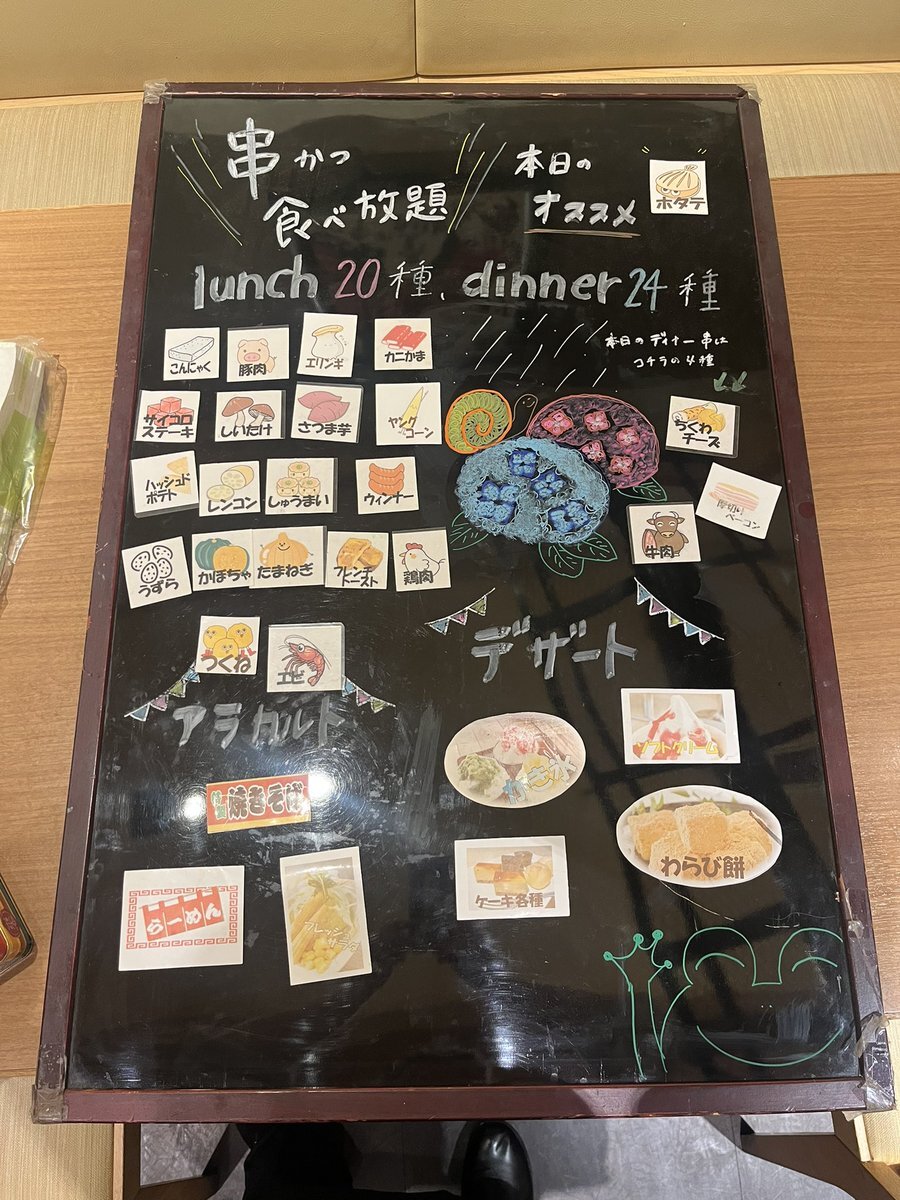 串かつ
食べ放題
本日の
オススメ
ホタテ
lunch 20種、dinner 24種
こんにゃく
豚肉
エリンギ
カニかま
本日のディナー串は
コチラの4種
サイコロ
ステーキ
しいたけ
さつま芋
ヤング
コーン
ちくわ
チーズ
ハッシュド
ポテト
レンコン
しゅうまい
ウィンナー
厚切り
ベーコン
牛肉
うずら
かぼちゃ
たまねぎ
フレンチ
トースト
鶏肉
つくね
エビ
デザート
アラカルト
かき氷
ソフトクリーム
特製
焼きそば
わらび餅
ケーキ各種
らーめん
フレッシュ
サラダ